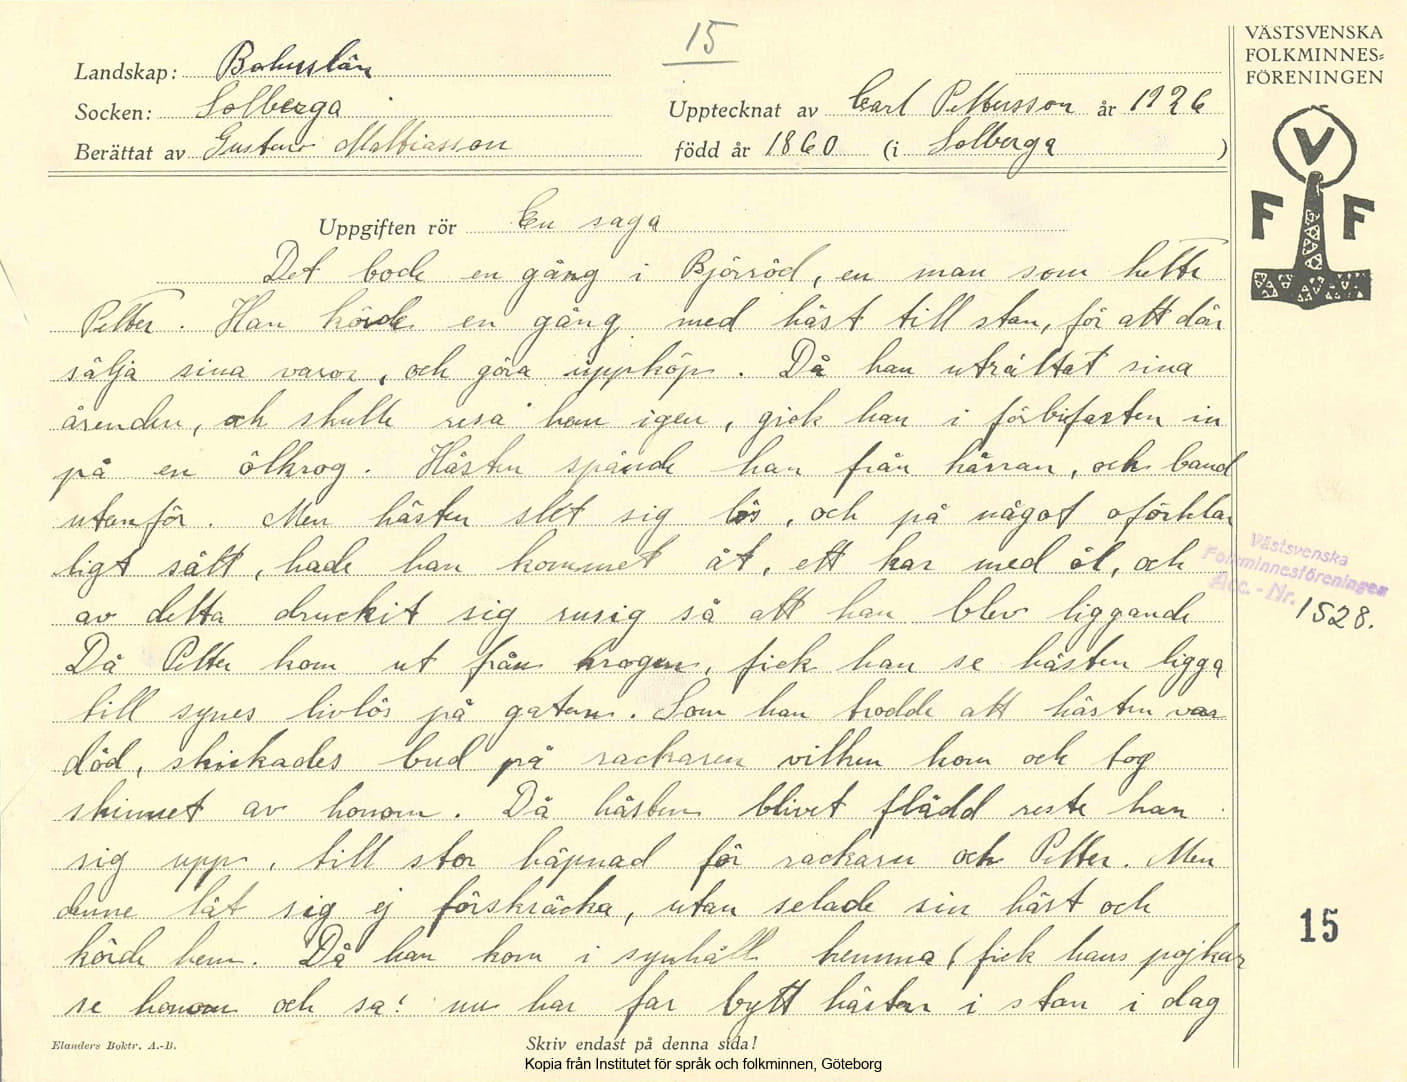 15
VÄSTSVENSKA
FOLKMINNES=
FÖRENINGEN
Landskap: Bohuslän
Socken: Solberga
Upptecknat av Carl Pettersson år 1926
Berättat av Gustav Mattiasson
född år 1860 (i Solberga )
V
F F
Uppgiften rör En saga
Det bode en gång i Björröd, en man som hette
Petter. Han körde en gång med häst till stan, för att där
sälja sina varor, och göra uppköp. Då han uträttat sina
ärenden, och skulle resa hem igen, gick han i förbifarten in
på en ölkrog. Hästen spände han från kärran, och band
utanför. Men hästen slet sig lös, och på något oförklar
ligt sätt, hade han kommet åt, ett kar med öl, och
av detta druckit sig rusig så att han blev liggande
Då Petter kom ut från krogen, fick han se hästen ligga
till synes livlös på gatan. Som han trodde att hästen var
död, skickades bud på rackaren vilken kom och tog
skinnet av honom. Då hästen blivet flådd reste han
sig upp, till stor häpnad för rackarn och Petter. Men
denne lät sig ej förskräcka, utan selade sin häst och
körde hem. Då han kom i synhåll hemma, fick hans pojkar
se honom och sa! nu har far bytt hästar i stan i dag
Västsvenska
Folkminnesföreningen
Acc. - Nr. 1528.
15
Elanders Boktr. A.-B.
Skriv endast på denna sida!
Kopia från Institutet för språk och folkminnen, Göteborg